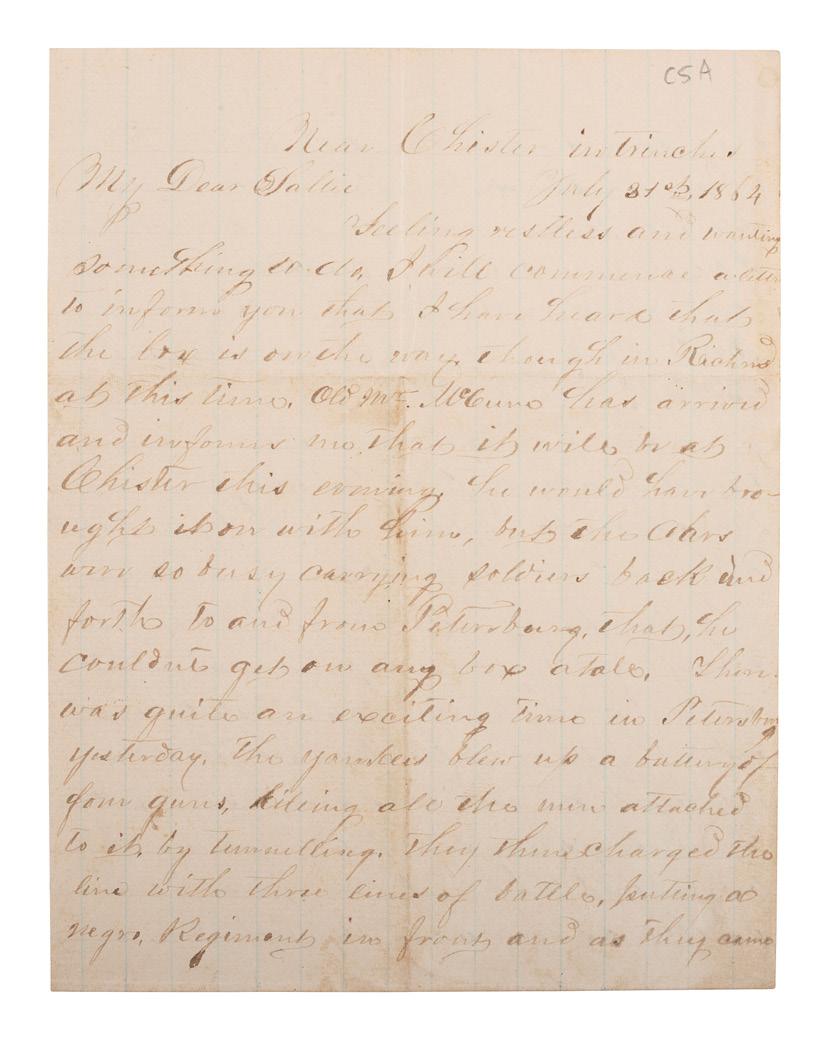 CSA
Near Chister in trinches
My Dear Sallie July 31st, 1864
Feeling restless and wanting
something to do, I will commence a letter
to inform you that I have heard that
the box is on the way, though in Richmd
at this time. Old Mr. McCune has arrived
and informs me, that it will be at
Chister this evening. he would have bro-
ught it on with him, but the Cars
were so busy carrying soldiers back and
forth to and from Petersburg, that, he
couldnt get on any box atale. There
was quite an exciting time in Petersburg
yesterday. The yankees blew up a battery of
four guns, killing all the men attached
to it, by tunnelling. They then charged the
line with three lines of battle, putting a
negro, Regiment in front and as they came